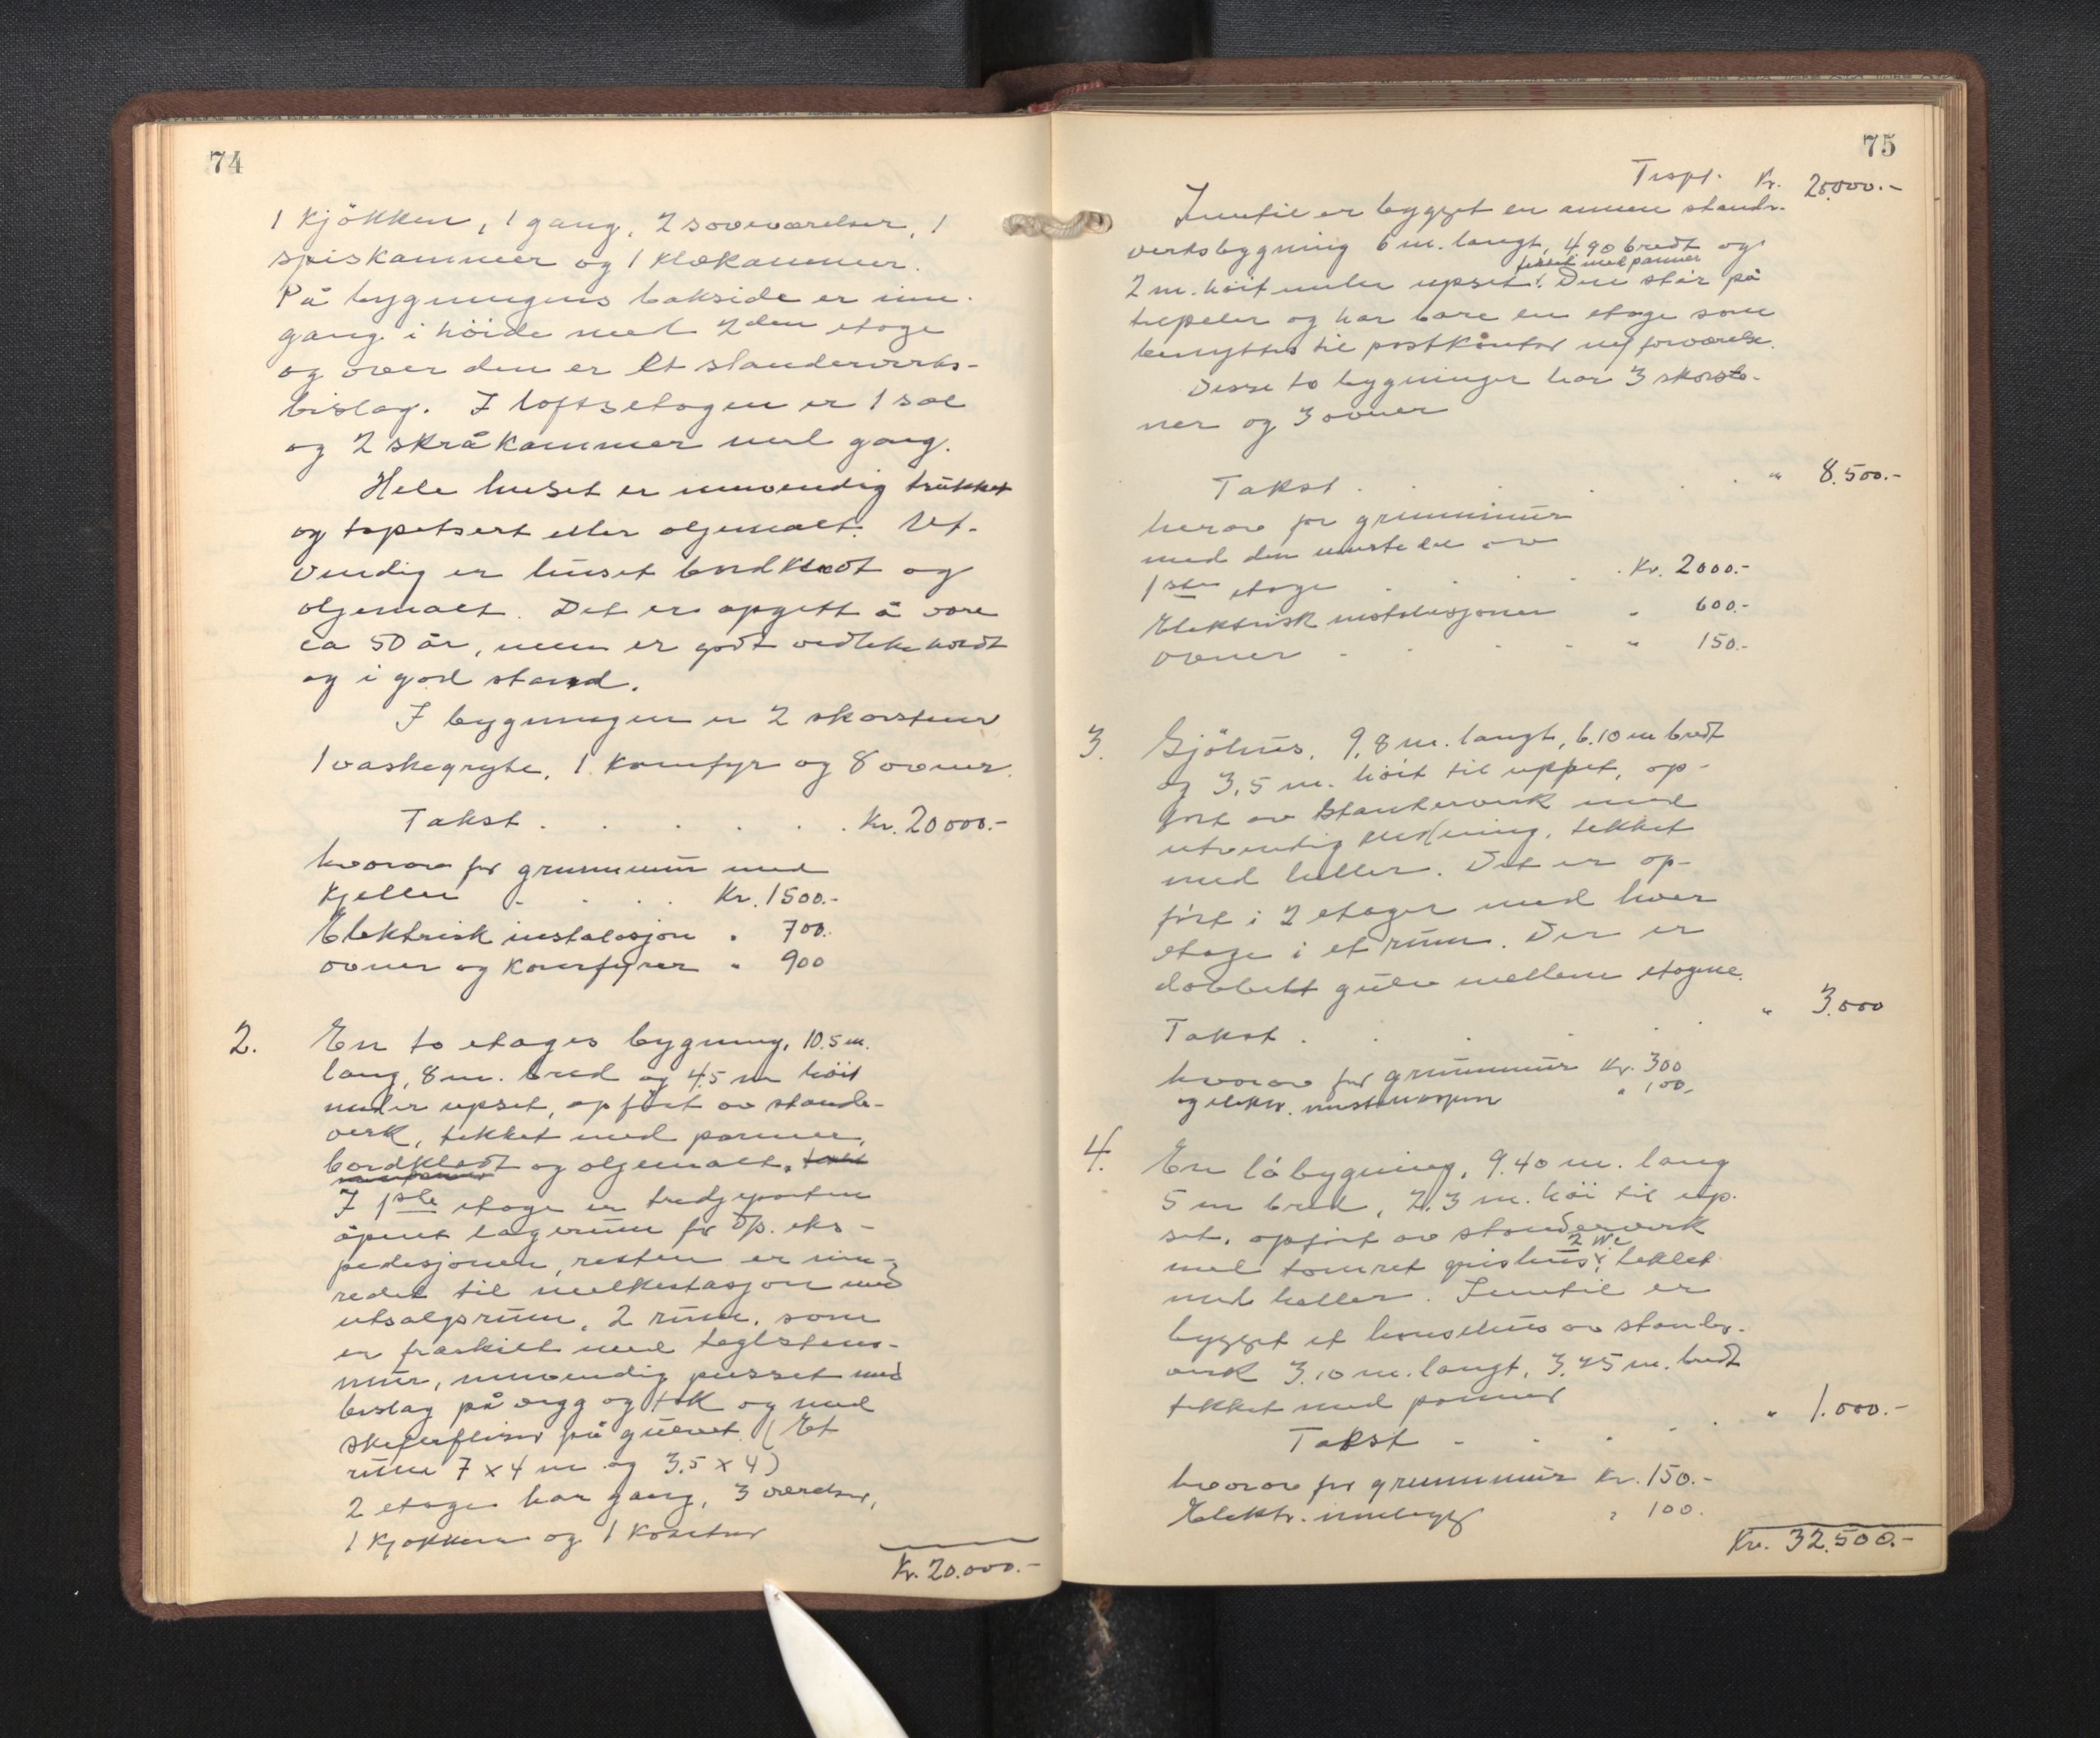 74
1 kjökken, 1 gang, 2 soveværelser, 1
spiskammer og 1 klækammer.
På bygningens bakside er inn-
gang i höide med 2den etage
og over den er et standerverks-
bislag. I loftsetagen er 1 sal
og 2 skråkammer med gang.
Hele huset er innvendig trukket
og tapetsert eller oljemalt. Ut-
vendig er huset bordklædt og
oljemalt. Det er opgitt å være
ca 50 år, men er godt vedlikeholdt
og i god stand.
I bygningen er 2 skorstener
1 vaskegryte, 1 komfyr og 8 ovner.
Takst . . . . . Kr. 20000.-
hvorav for grunnmur med
kjeller . . . . Kr. 1500.-
Elektrisk instalasjon " 700.-
ovner og komfyrer " 900
2. En to etages bygning, 10.5 m.
lang, 8 m. bred og 4.5 m höit
under upset, opfört av stander-
verk, tekket med panner,
bordklædt og oljemalt.
I 1ste etage er tredjeparten
åpent lagerrum for dp. eks-
pedisjonen, resten er inn-
redet til melkestasjon med
utsalgsrum, 2 rum, som
er fraskilt med teglstens-
mur, innvendig pusset med
beslag på vegg og tak og med
skiferfliser på gulvet. (Et
rum 7 x 4 m og 3,5 x 4)
2 etage har gang, 3 værelser,
1 kjøkken og 1 kontor
Kr. 20.000.-
75
Trspt. Kr. 20.000.-
Inntil er bygget en annen stander-
verksbygning 6 m. langt, 4,90 bredt og
tekket med panner
2 m. höit under upset. Den står på
trepeler og har bare en etage som
benyttes til postkontor m/ forværelse.
Disse to bygninger har 3 skorste-
ner og 3 ovner
Takst . . . . . " 8.500.-
herav for grunnmur
med den murte del av
1ste etage . . . . Kr. 2000.-
Elektrisk instalasjoner " 600.-
ovner - . . . " 150.-
3. Sjöhus, 9,8 m. langt, 6.10 m bredt
og 3,5 m. höit til uppset, op-
fört av standerverk med
utvendig kledning, tekket
med heller. Det er op-
fört i 2 etager med hver
etage i et rum. Der er
dobbelt gulv mellem etagene.
Takst . . . . . " 3.000
hvorav for grunnmur Kr. 300
og elektr. installasjon " 100.-
4. En låbygning, 9.40 m. lang
5 m bred, 2,3 m. höi til up-
set, opfört av standerverk
2 WC
med tömret grishus, tekket
med heller. Inntil er
bygget et hönsehus av stander-
verk 3.10 m. langt, 3,45 m. bredt
tekket med panner
Takst - . . . . " 1.000.-
hvorav for grunnmur Kr. 150.-
Elektr. innlegg " 100.
Kr. 32.500.-